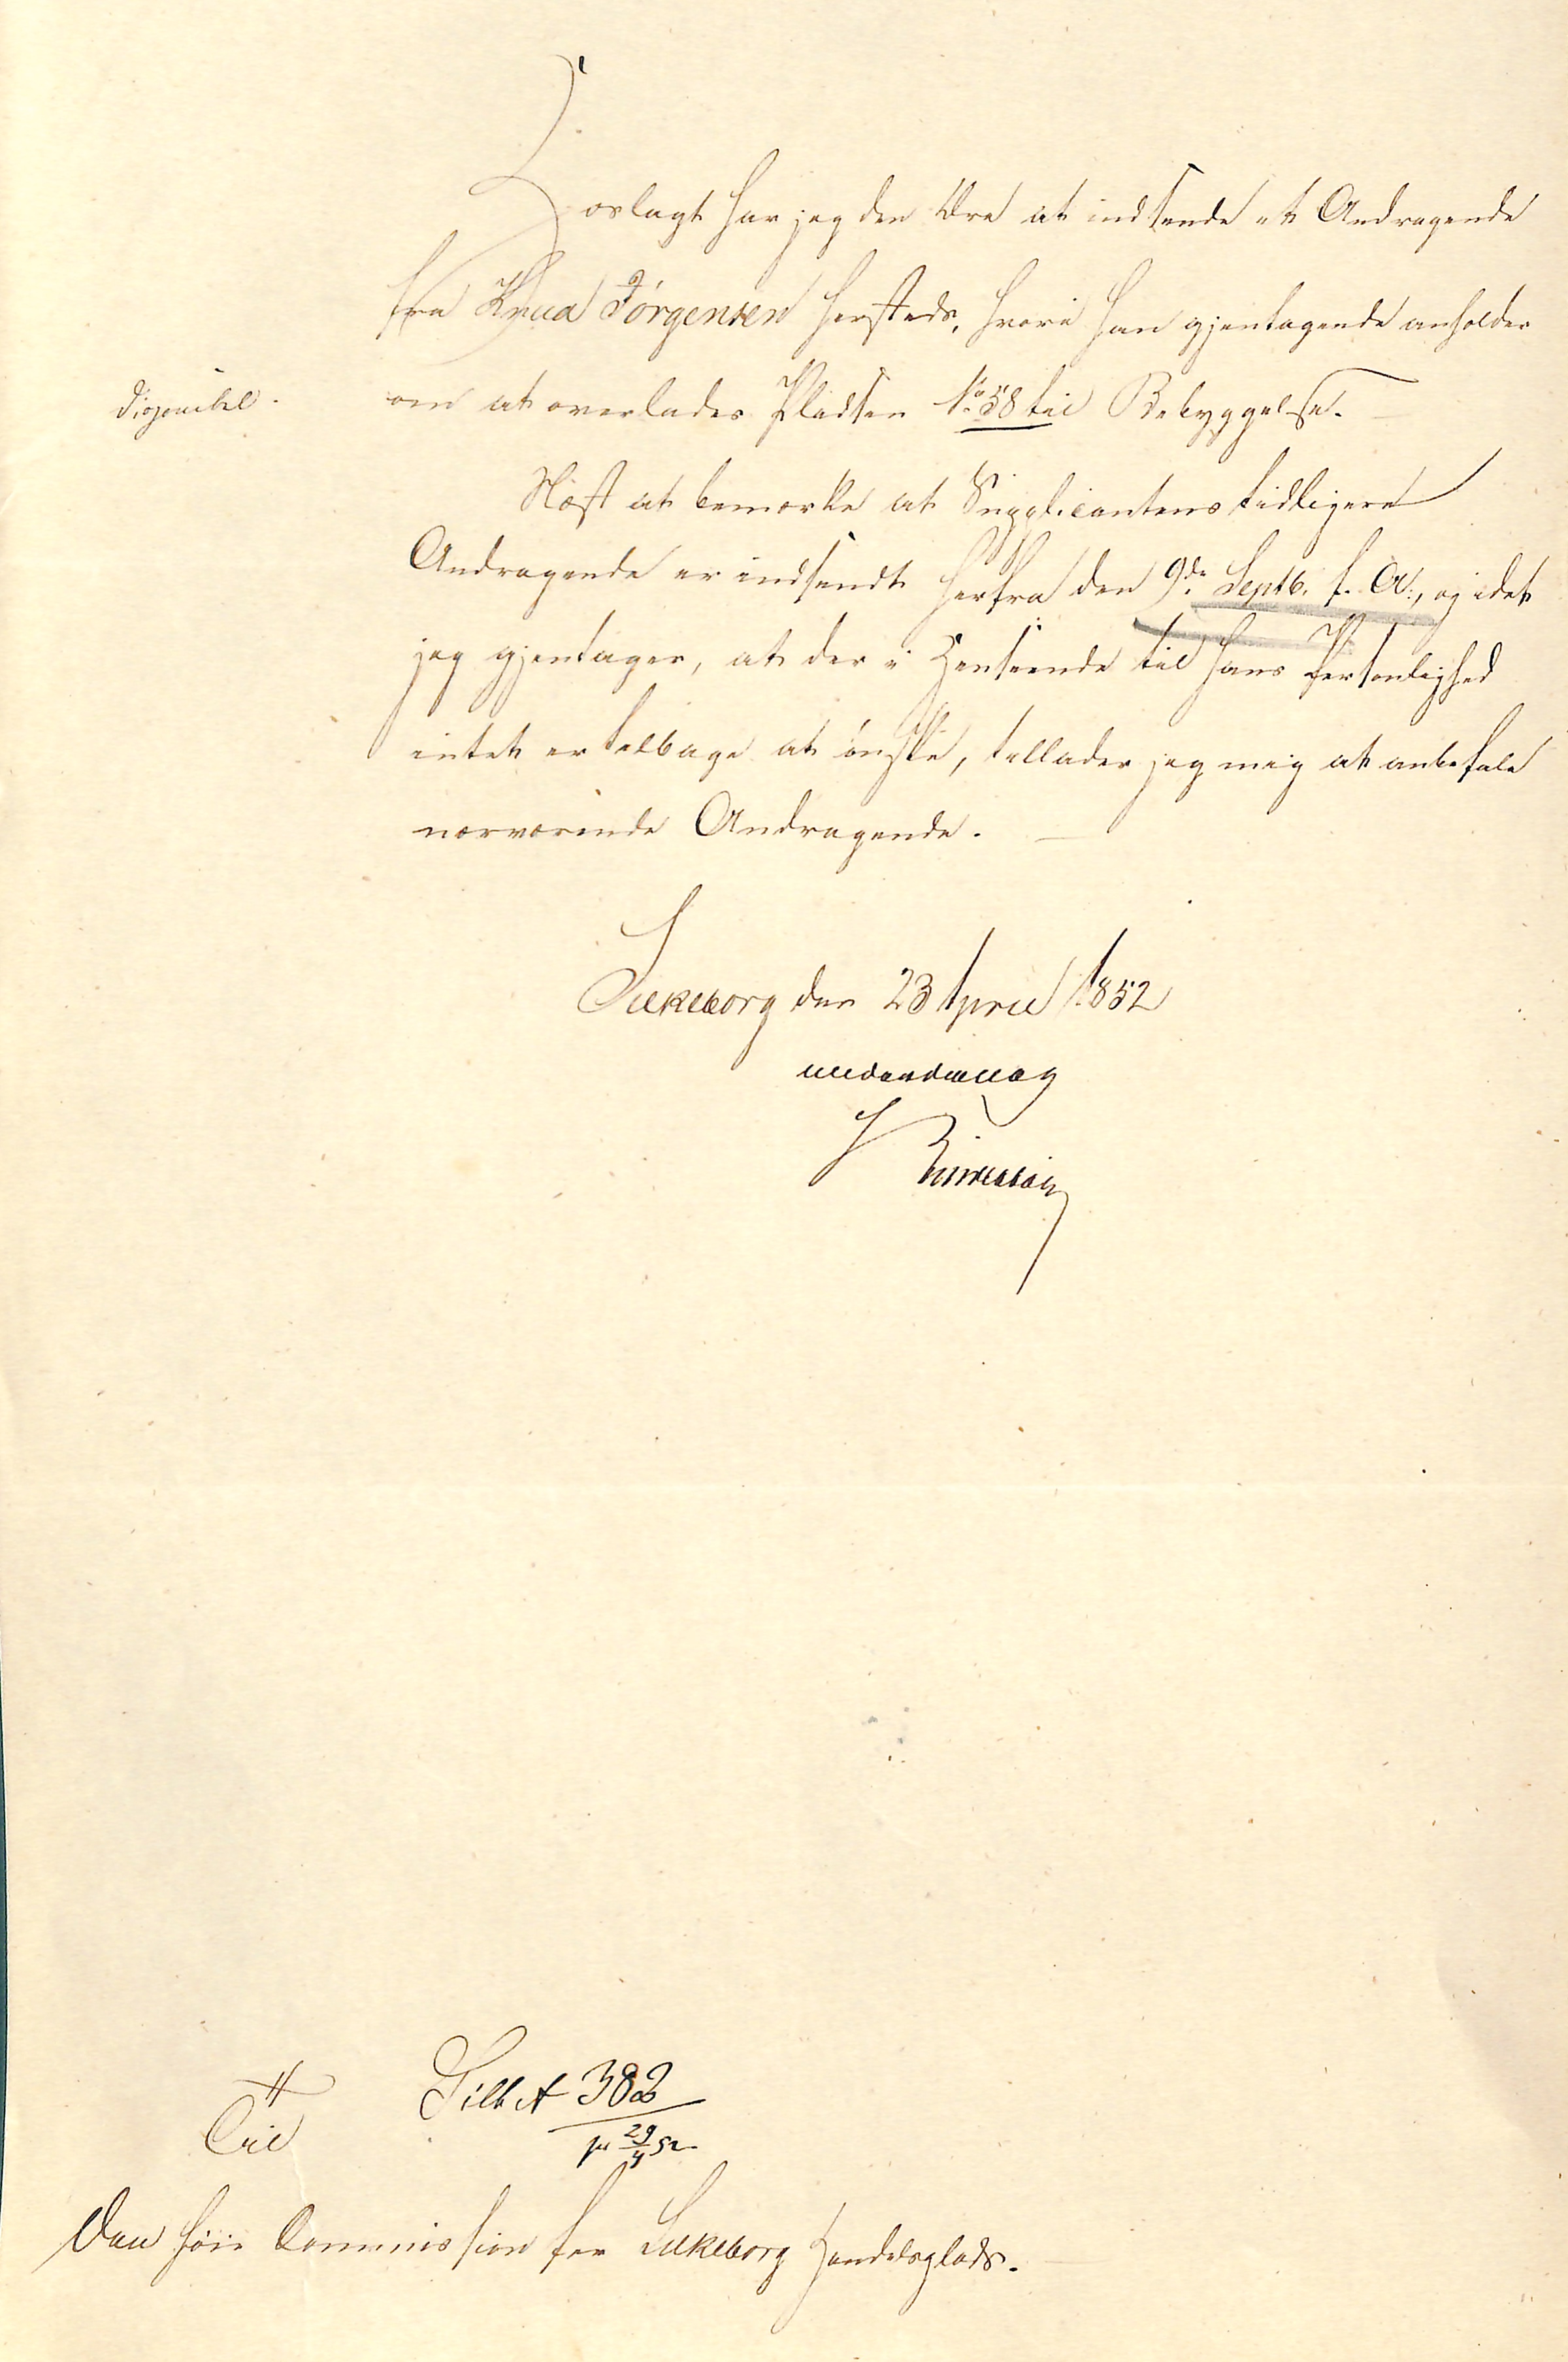 Hoslagt har jeg den Ære at indsende et Andragende
fra Knud Jörgensen hersteds, hvori han gjentagende anholder
disponibel.
om at overlades Pladsen No 58 til Bebyggelse.
Næst at bemærke at Supplicantens tidligere
Andragende er indsendt herfra den 9de Septb. f. A:, og idet
jeg gjentager, at der i Henseende til hans Personlighed
intet er tilbage at ønske, tillader jeg mig at anbefale
nærværende Andragende.
Silkeborg den 23 April 1852
underdanig
Silk A 382
29/4 52
Til
Den høie Commission for Silkeborg Handelsplads.